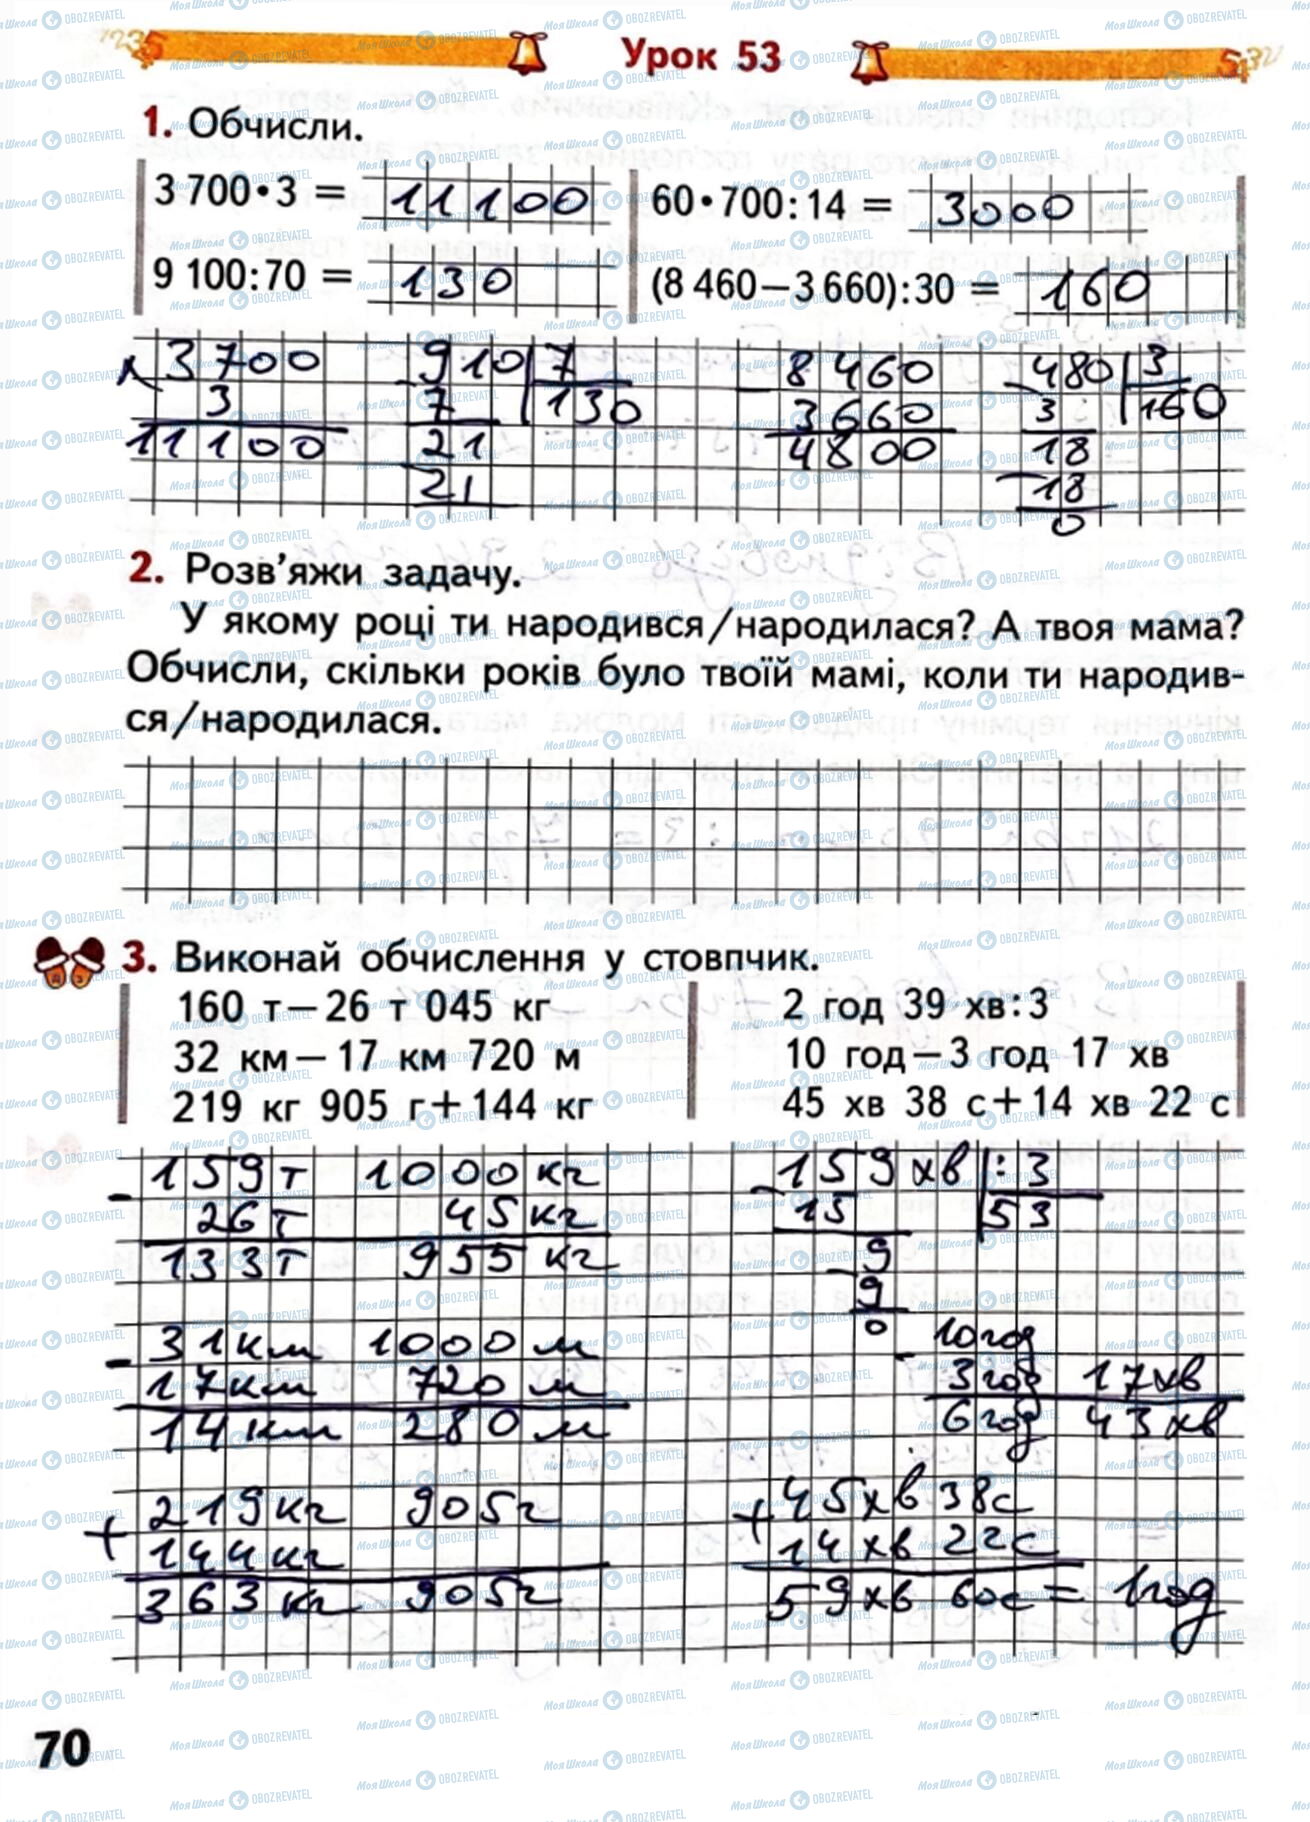 Урок 53
1. Обчисли.
3 700•3 = 11100
60•700:14 = 3000
9 100:70 = 130
(8 460−3 660):30 = 160
× 3700
3
11100
− 910 | 7
7 | 130
− 21
21
− 8460
3660
4800
− 480 | 3
3 | 160
− 18
18
0
2. Розв'яжи задачу.
У якому році ти народився/народилася? А твоя мама?
Обчисли, скільки років було твоїй мамі, коли ти народив-
ся/народилася.
3. Виконай обчислення у стовпчик.
160 т−26 т 045 кг
32 км−17 км 720 м
219 кг 905 г+144 кг
2 год 39 хв:3
10 год−3 год 17 хв
45 хв 38 с+14 хв 22 с
− 159т 1000 кг
26т 45 кг
133т 955 кг
− 31км 1000 м
17км 720 м
14км 280 м
+ 219кг 905г
144кг
363кг 905г
− 159хв | : 3
15 | 53
− 9
9
0
− 10год
3год 17хв
6год 43хв
+ 45хв 38с
14хв 22с
59хв 60с = 1год
70
МояШкола OBOZREVATEL